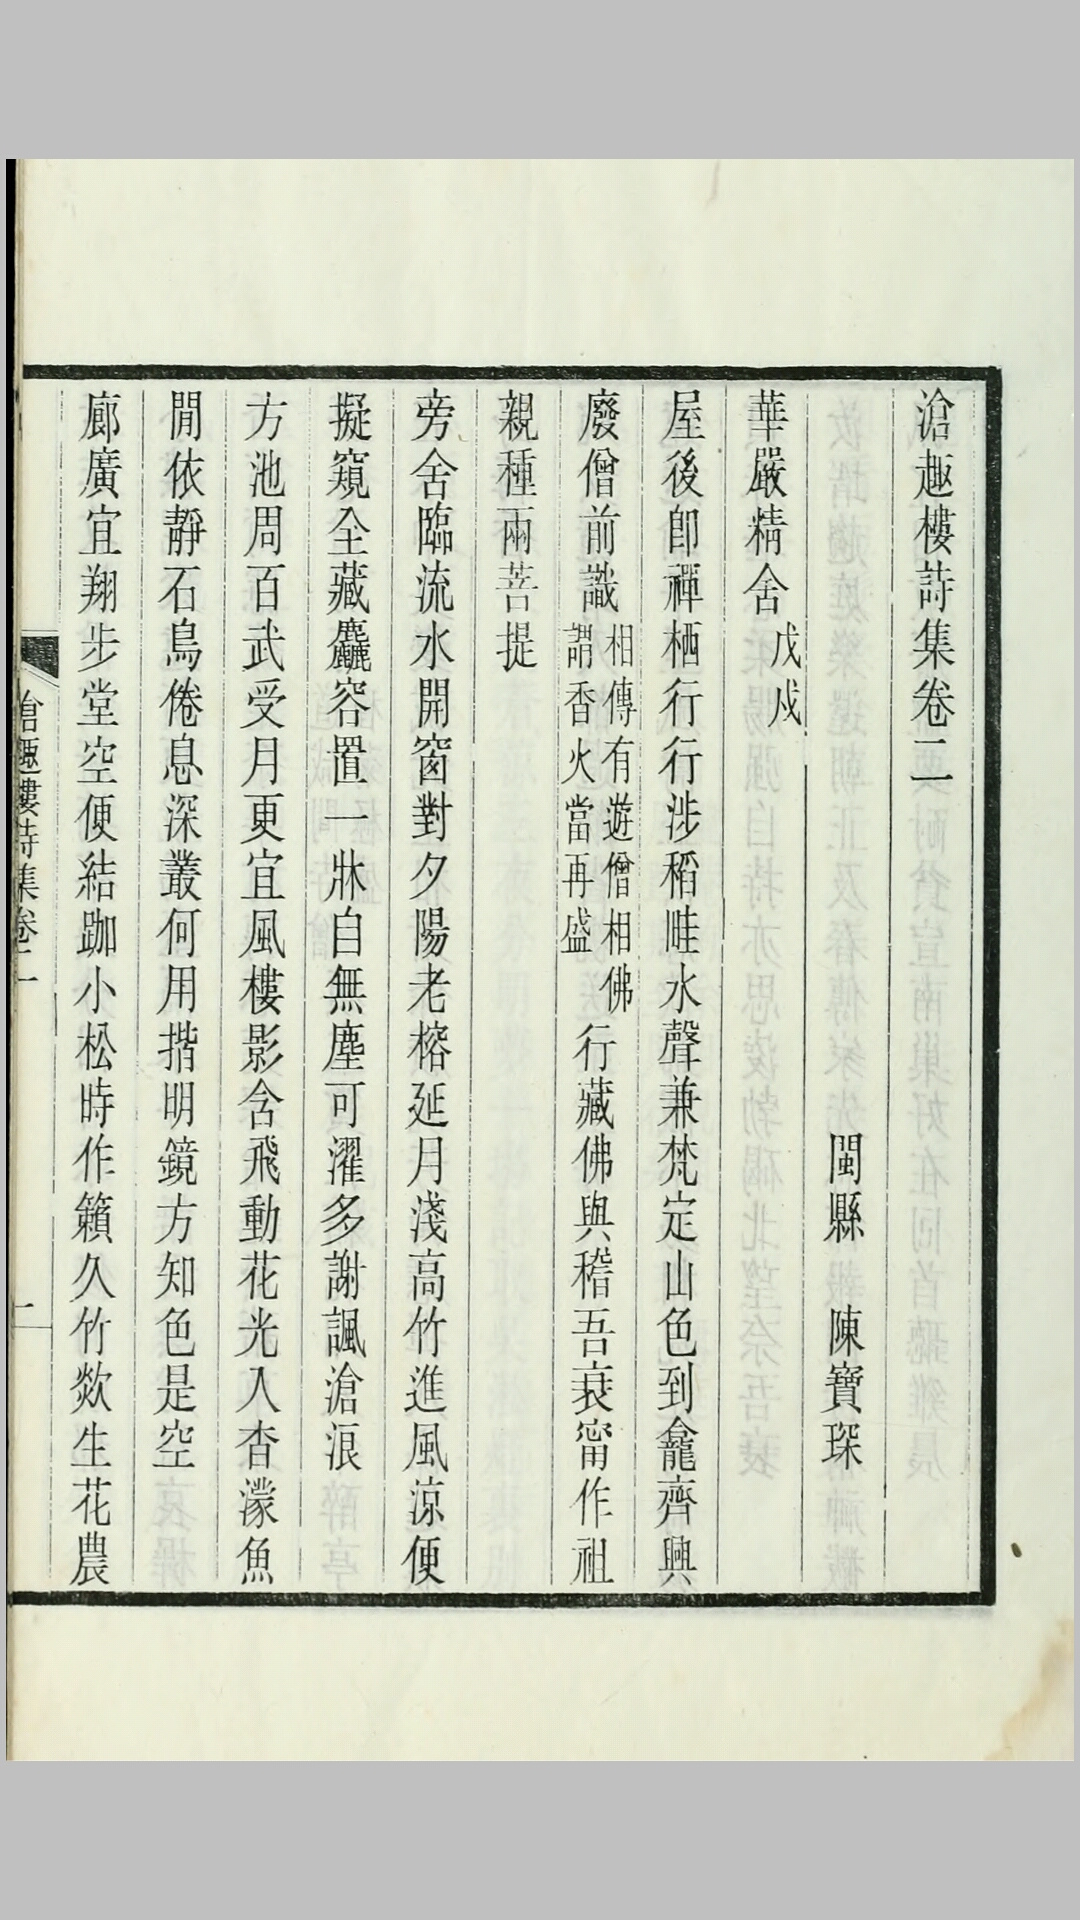 滄趣樓詩集卷二
閩縣 陳寶琛
華嚴精舍 戊戌
屋後卽禪栖行行涉稻畦水聲兼梵定山色到龕齊興
廢僧前識 相傳有遊僧相佛
謂香火當再盛 行藏佛與稽吾衰甯作祖
親種兩菩提
旁舍臨流水開窗對夕陽老榕延月淺高竹進風涼便
擬窺全藏麤容置一牀自無塵可濯多謝諷滄浪
方池周百武受月更宜風樓影含飛動花光入杳濛魚
閒依靜石鳥倦息深叢何用揩明鏡方知色是空
廊廣宜翔步堂空便結跏小松時作籟久竹欻生花農
滄趣樓詩集卷二
一